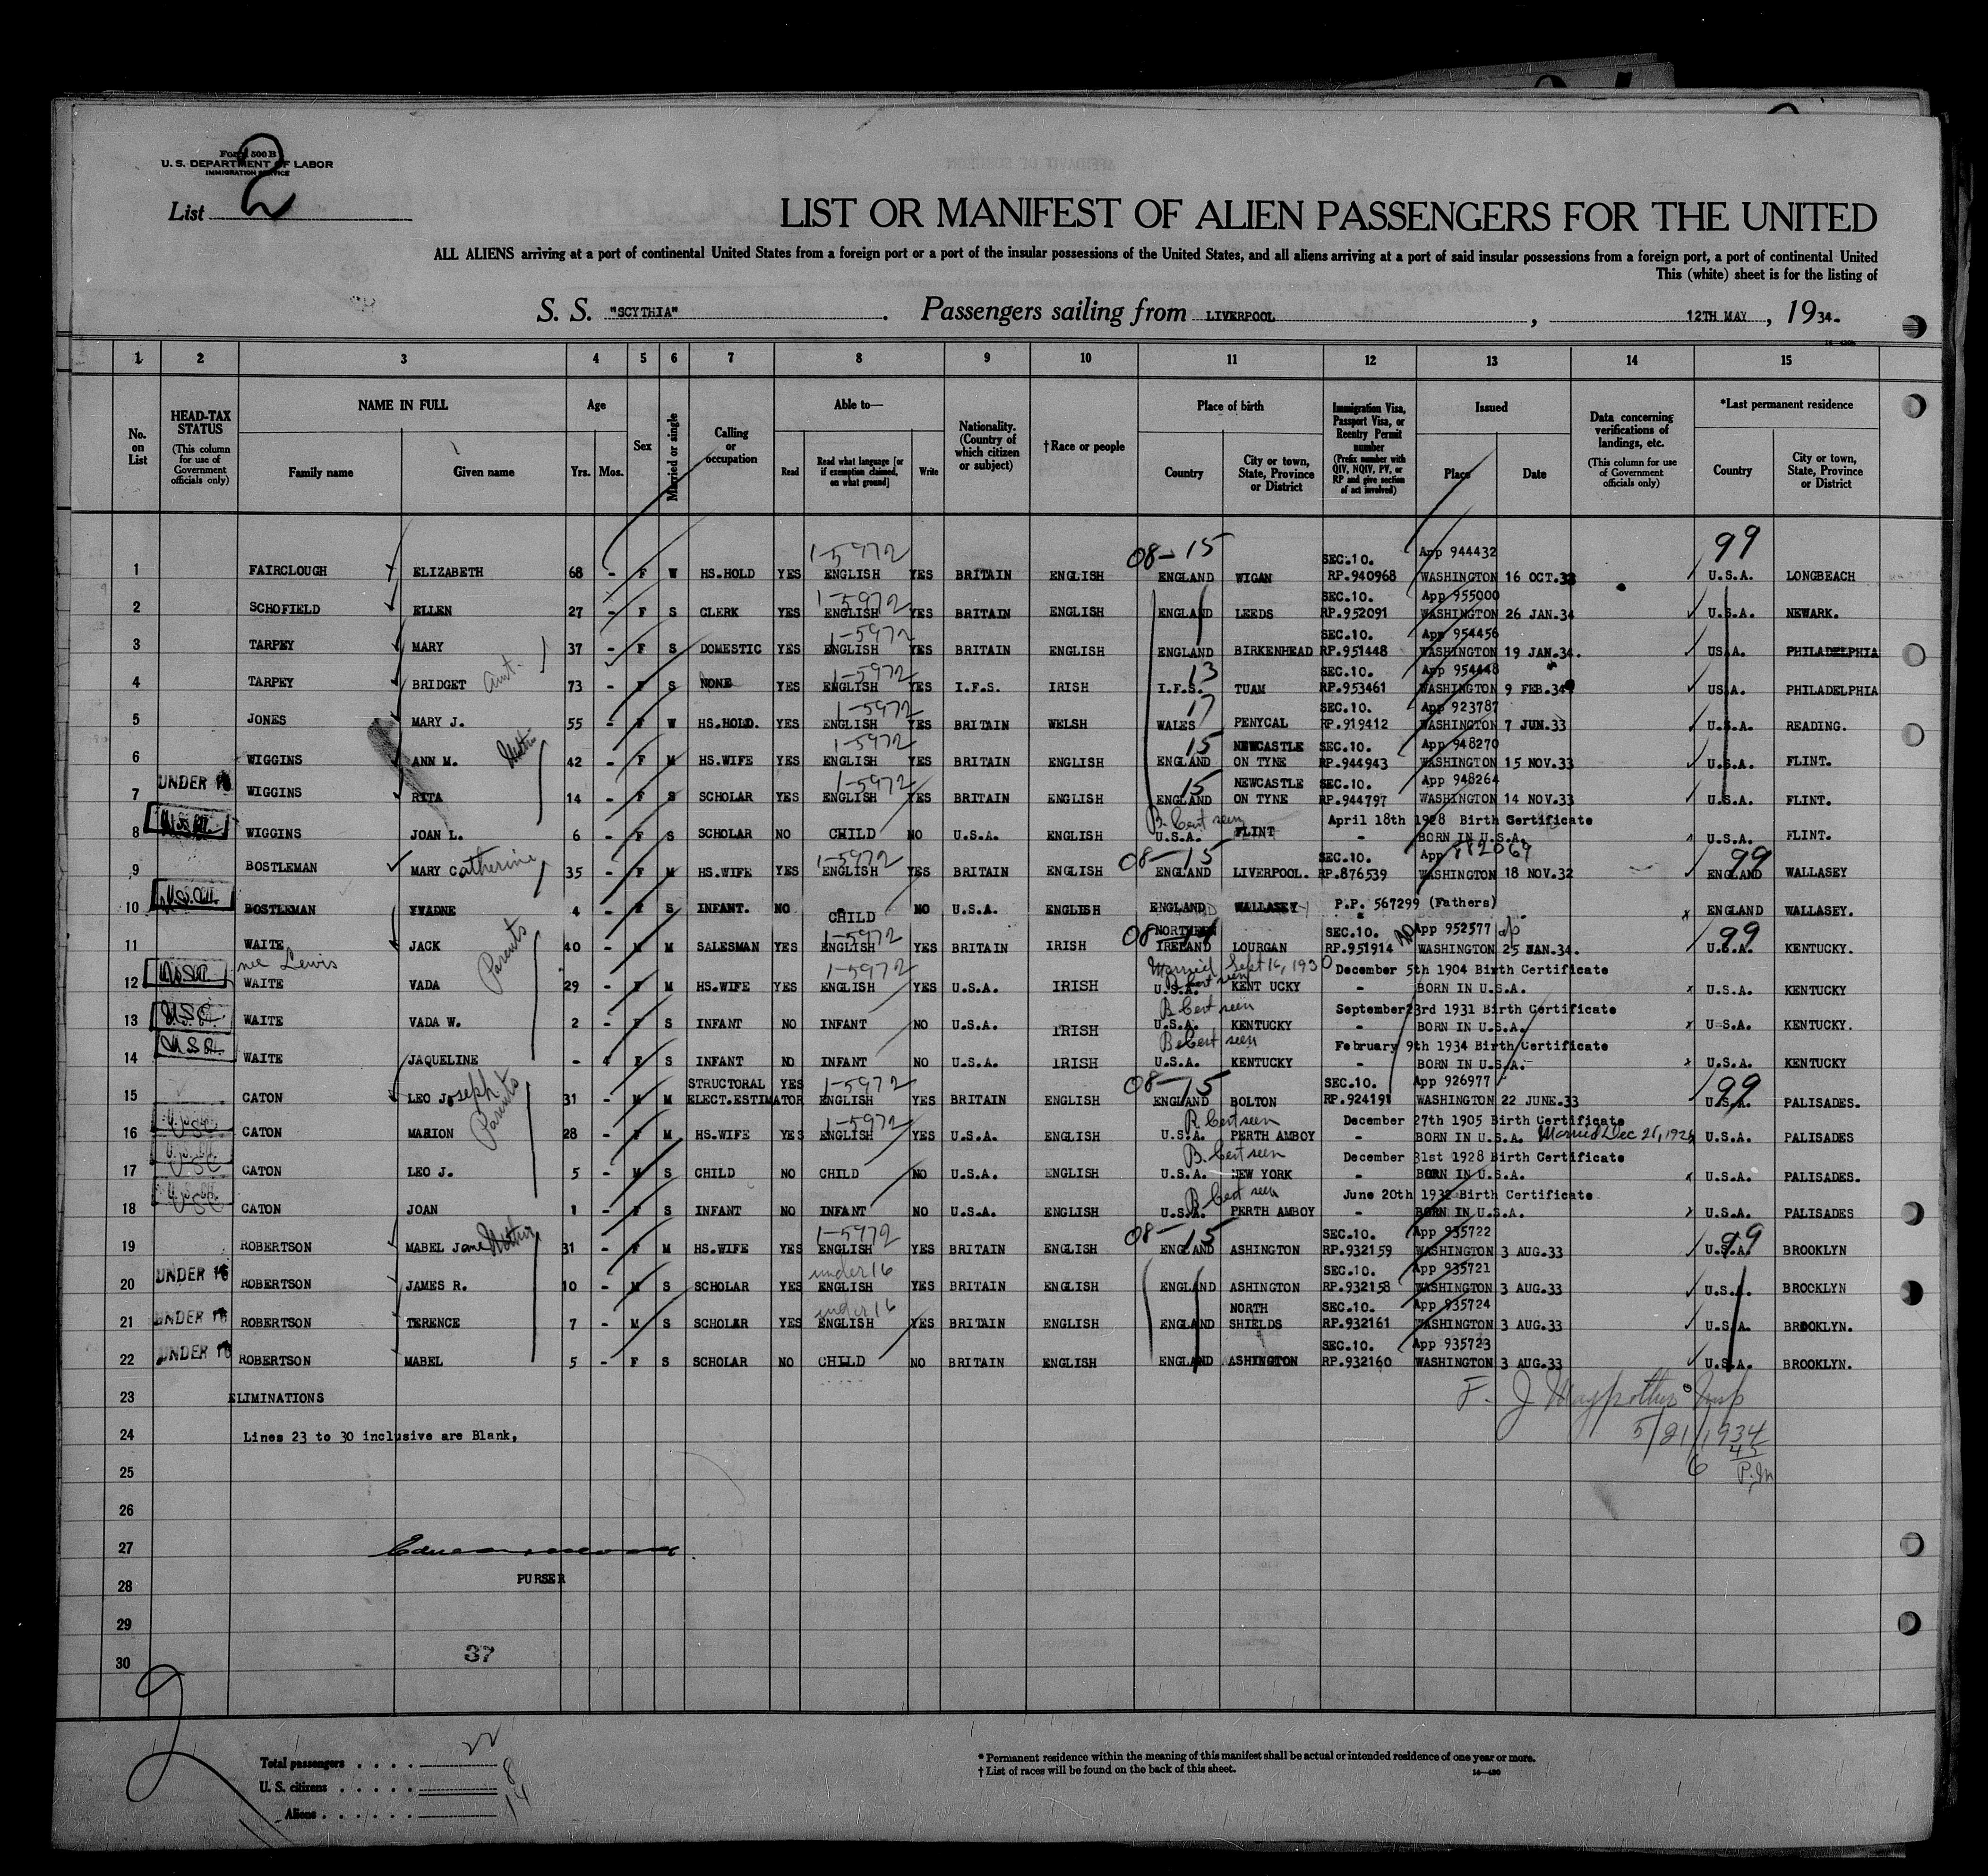 Form 500 B
U. S. DEPARTMENT OF LABOR
IMMIGRATION SERVICE
List 2
LIST OR MANIFEST OF ALIEN PASSENGERS FOR THE UNITED
ALL ALIENS arriving at a port of continental United States from a foreign port or a part of the insular possessions of the United States, and all aliens arriving at a port of said insular possessions from a foreign port, a part of continental United
This (white) sheet is for the listing of
S. S. "SCYTHIA" . Passengers sailing from LIVERPOOL , 12TH MAY , 1934.
1 2 3 4 5 6 7 8 9 10 11 12 13 14 15
No. on List
HEAD-TAX STATUS
(This column for use of Government officials only)
NAME IN FULL
Family name
Given name
Age
Yrs. Mos.
Sex
Married or single
Calling or occupation
Able to—
Read
Read what language [or if exemption claimed, on what ground]
Write
Nationality. (Country of which citizen or subject)
† Race or people
Place of birth
Country
City or town, State, Province or District
Immigration Visa, Passport Visa, or Reentry Permit number
(Prefix number with QIV, NQIV, PV, or RP and give section of act involved)
Issued
Place
Date
Data concerning verifications of landings, etc.
(This column for use of Government officials only)
*Last permanent residence
Country
City or town, State, Province or District
1-5972 08-15 SEC.10. App 944432 99
1 FAIRCLOUGH ELIZABETH 68 - F W HS.HOLD YES ENGLISH YES BRITAIN ENGLISH ENGLAND WIGAN RP.940968 WASHINGTON 16 OCT.33 U.S.A. LONGBEACH
1-5972 SEC.10. App 955000
2 SCHOFIELD ELLEN 27 - F S CLERK YES ENGLISH YES BRITAIN ENGLISH ENGLAND LEEDS RP.952091 WASHINGTON 26 JAN.34 U.S.A. NEWARK.
1-5972 SEC.10. App 954456
3 TARPEY MARY 37 - F S DOMESTIC YES ENGLISH YES BRITAIN ENGLISH ENGLAND BIRKENHEAD RP.951448 WASHINGTON 19 JAN.34. USA. PHILADELPHIA
1-5972 13 SEC.10. App 954448
4 TARPEY BRIDGET Aunt. 73 - F S NONE YES ENGLISH YES I.F.S. IRISH I.F.S. TUAM RP.953461 WASHINGTON 9 FEB.34 USA. PHILADELPHIA
1-5972 17 SEC.10. App 923787
5 JONES MARY J. 55 - F W HS.HOLD. YES ENGLISH YES BRITAIN WELSH WALES PENYCAL RP.919412 WASHINGTON 7 JUN.33 U.S.A. READING.
1-5972 15 NEWCASTLE SEC.10. App 948270
6 WIGGINS ANN M. 42 - F M HS.WIFE YES ENGLISH YES BRITAIN ENGLISH ENGLAND ON TYNE RP.944943 WASHINGTON 15 NOV.33 U.S.A. FLINT.
UNDER 16 1-5972 15 NEWCASTLE SEC.10. App 948264
7 WIGGINS RITA 14 - F S SCHOLAR YES ENGLISH YES BRITAIN ENGLISH ENGLAND ON TYNE RP.944797 WASHINGTON 14 NOV.33 U.S.A. FLINT.
B. Cert seen April 18th 1928 Birth Certificate
8 WIGGINS JOAN L. 6 - F S SCHOLAR NO CHILD NO U.S.A. ENGLISH U.S.A. FLINT - BORN IN U.S.A. U.S.A. FLINT.
1-5972 08-15 SEC.10. App 882069 99
9 BOSTLEMAN MARY Catherine 35 - F M HS.WIFE YES ENGLISH YES BRITAIN ENGLISH ENGLAND LIVERPOOL. RP.876539 WASHINGTON 18 NOV.32 ENGLAND WALLASEY
P.P. 567299 (Fathers)
10 BOSTLEMAN YVADNE 4 - F S INFANT. NO CHILD NO U.S.A. ENGLISH ENGLAND WALLASEY ENGLAND WALLASEY.
1-5972 08-14 NORTHERN SEC.10. App 952577 99
11 WAITE JACK 40 - M M SALESMAN YES ENGLISH YES BRITAIN IRISH IRELAND LOURGAN RP.951914 WASHINGTON 25 JAN.34. U.S.A. KENTUCKY.
nee Lewis Parents 1-5972 Married Sept 16, 1930 B Cert seen December 5th 1904 Birth Certificate
12 WAITE VADA 29 - F M HS.WIFE YES ENGLISH YES U.S.A. IRISH U.S.A. KENT UCKY - BORN IN U.S.A. U.S.A. KENTUCKY
U.S.C. B Cert seen September23rd 1931 Birth Certificate
13 WAITE VADA W. 2 - F S INFANT NO INFANT NO U.S.A. IRISH U.S.A. KENTUCKY - BORN IN U.S.A. U.S.A. KENTUCKY.
B Cert seen February 9th 1934 Birth Certificate
14 WAITE JAQUELINE - 4 F S INFANT NO INFANT NO U.S.A. IRISH U.S.A. KENTUCKY - BORN IN U.S.A. U.S.A. KENTUCKY
STRUCTORAL YES 1-5972 08-15 SEC.10. App 926977 99
15 CATON LEO Joseph 31 - M M ELECT.ESTIMATOR ENGLISH YES BRITAIN ENGLISH ENGLAND BOLTON RP.924191 WASHINGTON 22 JUNE.33 U.S.A. PALISADES.
U.S.C. Parents 1-5972 B. Cert seen December 27th 1905 Birth Certificate
16 CATON MARION 28 - F M HS.WIFE YES ENGLISH YES U.S.A. ENGLISH U.S.A. PERTH AMBOY - BORN IN U.S.A. Married Dec 21, 1926 U.S.A. PALISADES
U.S.C. B. Cert seen December 31st 1928 Birth Certificate
17 CATON LEO J. 5 - M S CHILD NO CHILD NO U.S.A. ENGLISH U.S.A. NEW YORK - BORN IN U.S.A. U.S.A. PALISADES.
U.S.C. B. Cert seen June 20th 1932 Birth Certificate
18 CATON JOAN 1 - F S INFANT NO INFANT NO U.S.A. ENGLISH U.S.A. PERTH AMBOY - BORN IN U.S.A. U.S.A. PALISADES
1-5972 08-15 SEC.10. App 935722 99
19 ROBERTSON MABEL Jane Mother 31 - F M HS.WIFE YES ENGLISH YES BRITAIN ENGLISH ENGLAND ASHINGTON RP.932159 WASHINGTON 3 AUG.33 U.S.A. BROOKLYN
UNDER 16 under 16 SEC.10. App 935721
20 ROBERTSON JAMES R. 10 - M S SCHOLAR YES ENGLISH YES BRITAIN ENGLISH ENGLAND ASHINGTON RP.932158 WASHINGTON 3 AUG.33 U.S.A. BROCKLYN
UNDER 16 under 16 NORTH SEC.10. App 935724
21 ROBERTSON TERENCE 7 - M S SCHOLAR YES ENGLISH YES BRITAIN ENGLISH ENGLAND SHIELDS RP.932161 WASHINGTON 3 AUG.33 U.S.A. BROOKLYN.
UNDER 16 SEC.10. App 935723
22 ROBERTSON MABEL 5 - F S SCHOLAR NO CHILD NO BRITAIN ENGLISH ENGLAND ASHINGTON RP.932160 WASHINGTON 3 AUG.33 U.S.A. BROOKLYN.
23 ELIMINATIONS
24 Lines 23 to 30 inclusive are Blank,
5/21/1934
25
26
27
PURSER
28
29
37
30
Total passengers . . . . 22
U. S. citizens . . . . . 8
Aliens . . . . . . 14
* Permanent residence within the meaning of this manifest shall be actual or intended residence of one year or more.
† List of races will be found on the back of this sheet.
14—430